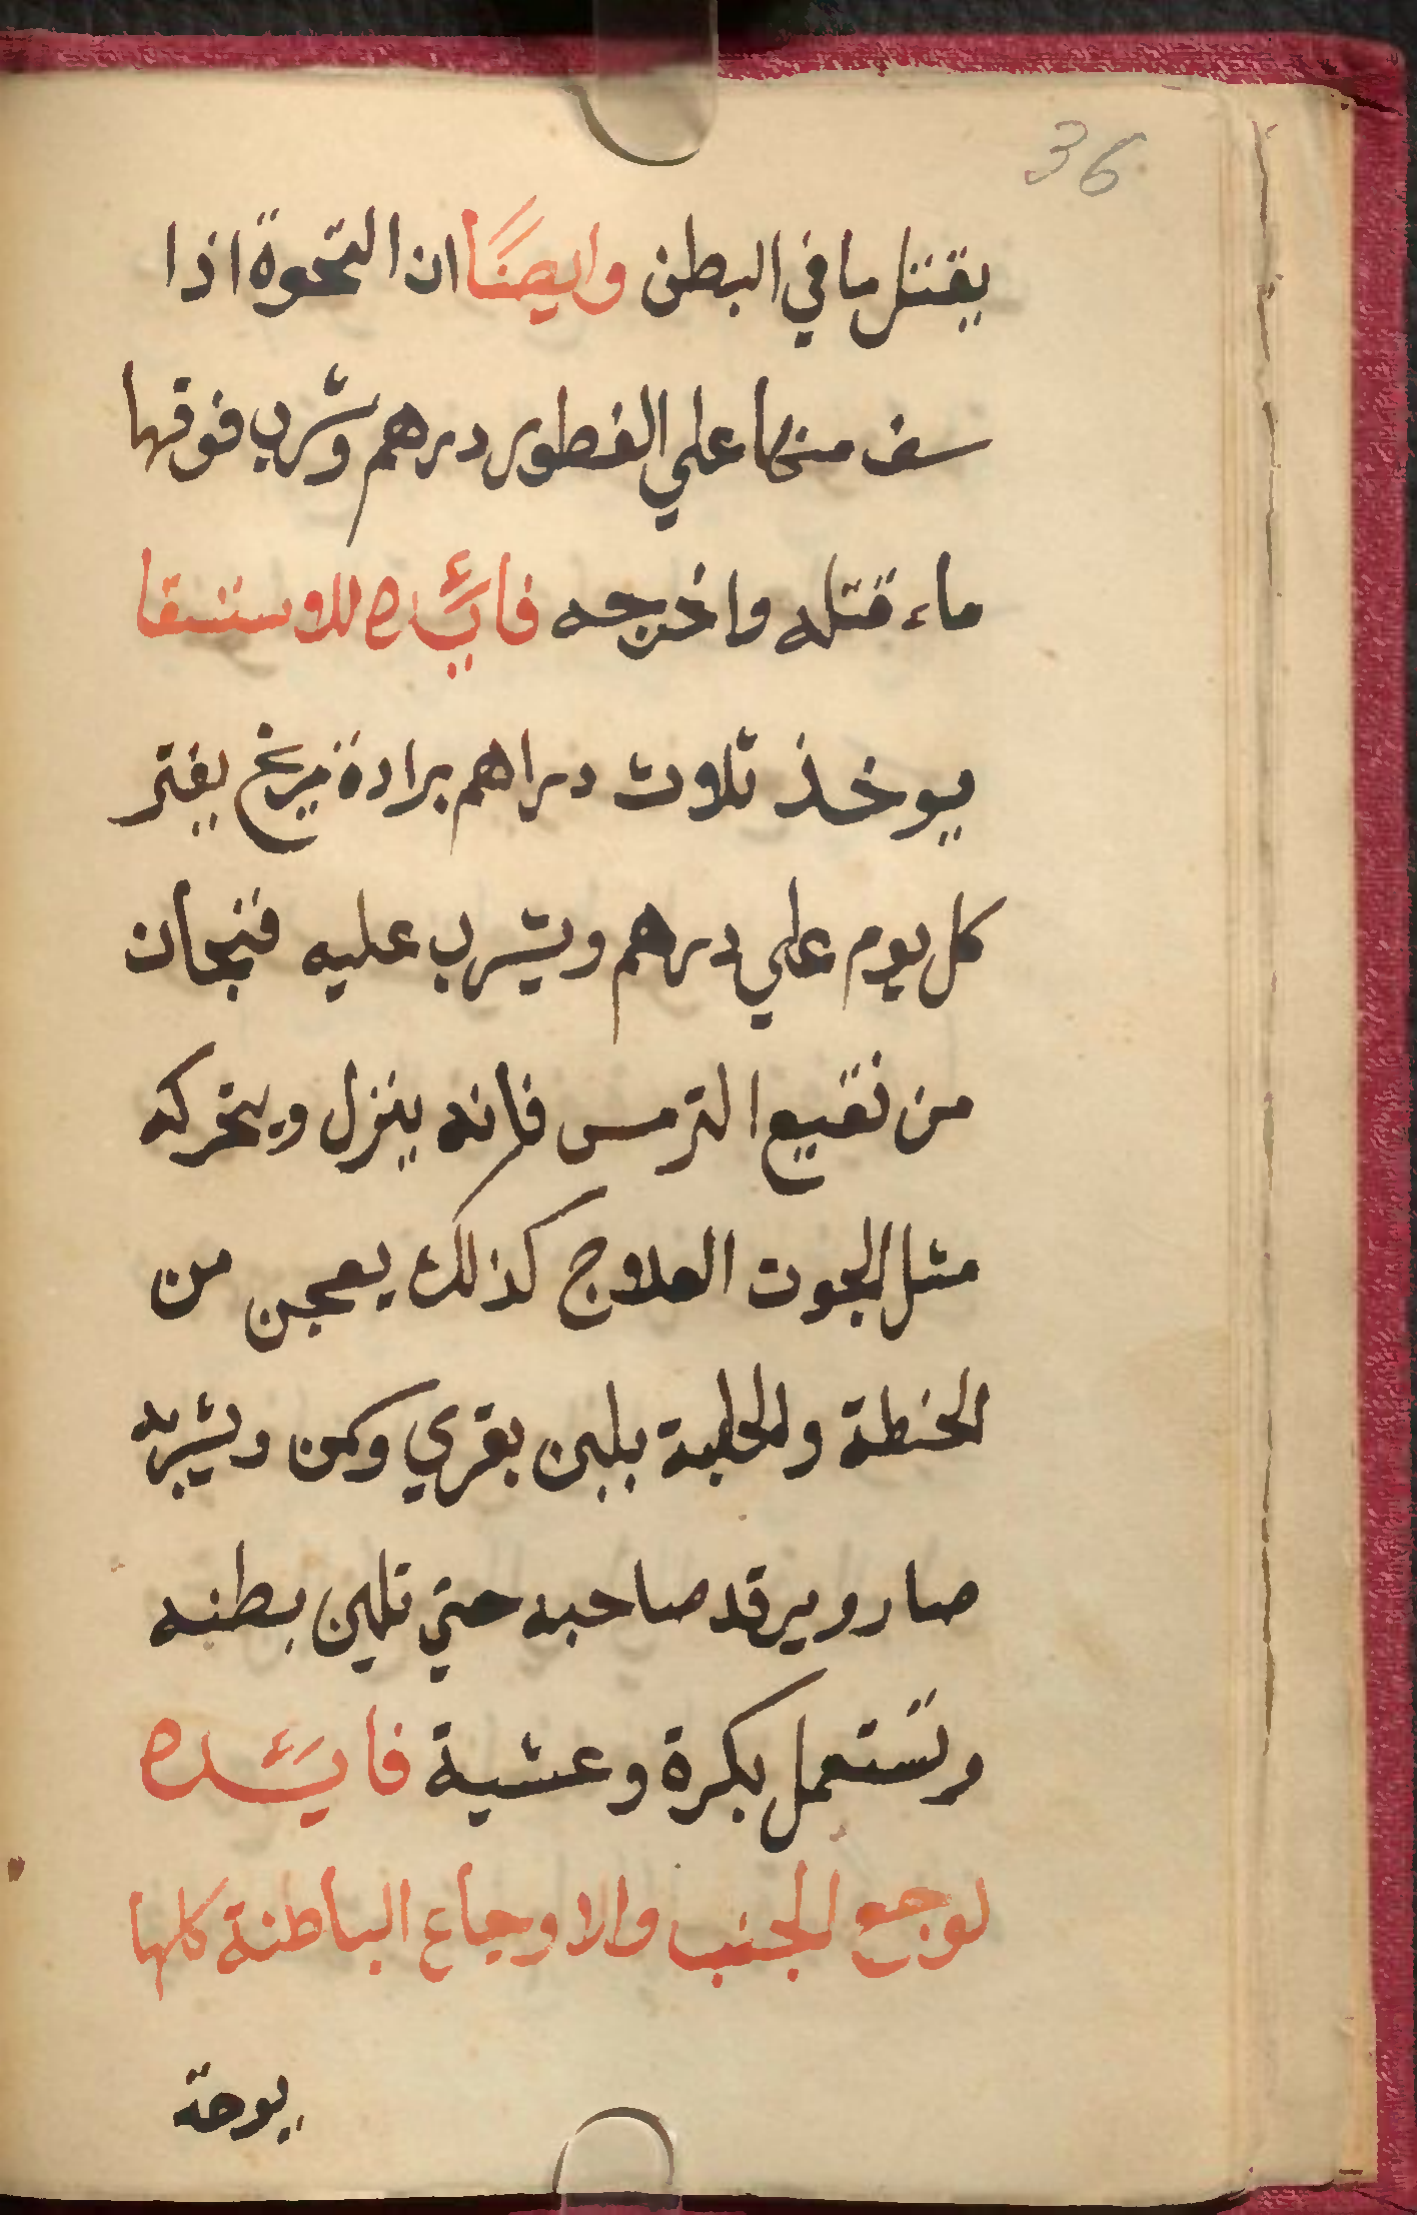 36
يقتل ما في البطن وايضًا ان النخوة اذا
سف منها علي الفطور درهم وشرب فوقها
ماء قتله واخرجه فائده للاستسقا
يوخذ ثلاث دراهم برادة مريخ يفتر
كل يوم علي درهم ويشرب عليه فنجان
من نقيع الترمس فانه ينزل ويتحركه
مثل الجوت العلاج كذلك يعجن من
الحنطة والحلبة بلبن بقري وكمن ويشربه
حار ويرقد صاحبه حتي تلين بطنه
وتستعمل بكرة وعشية فائده
لوجع الجنب والاوجاع الباطنة كلها